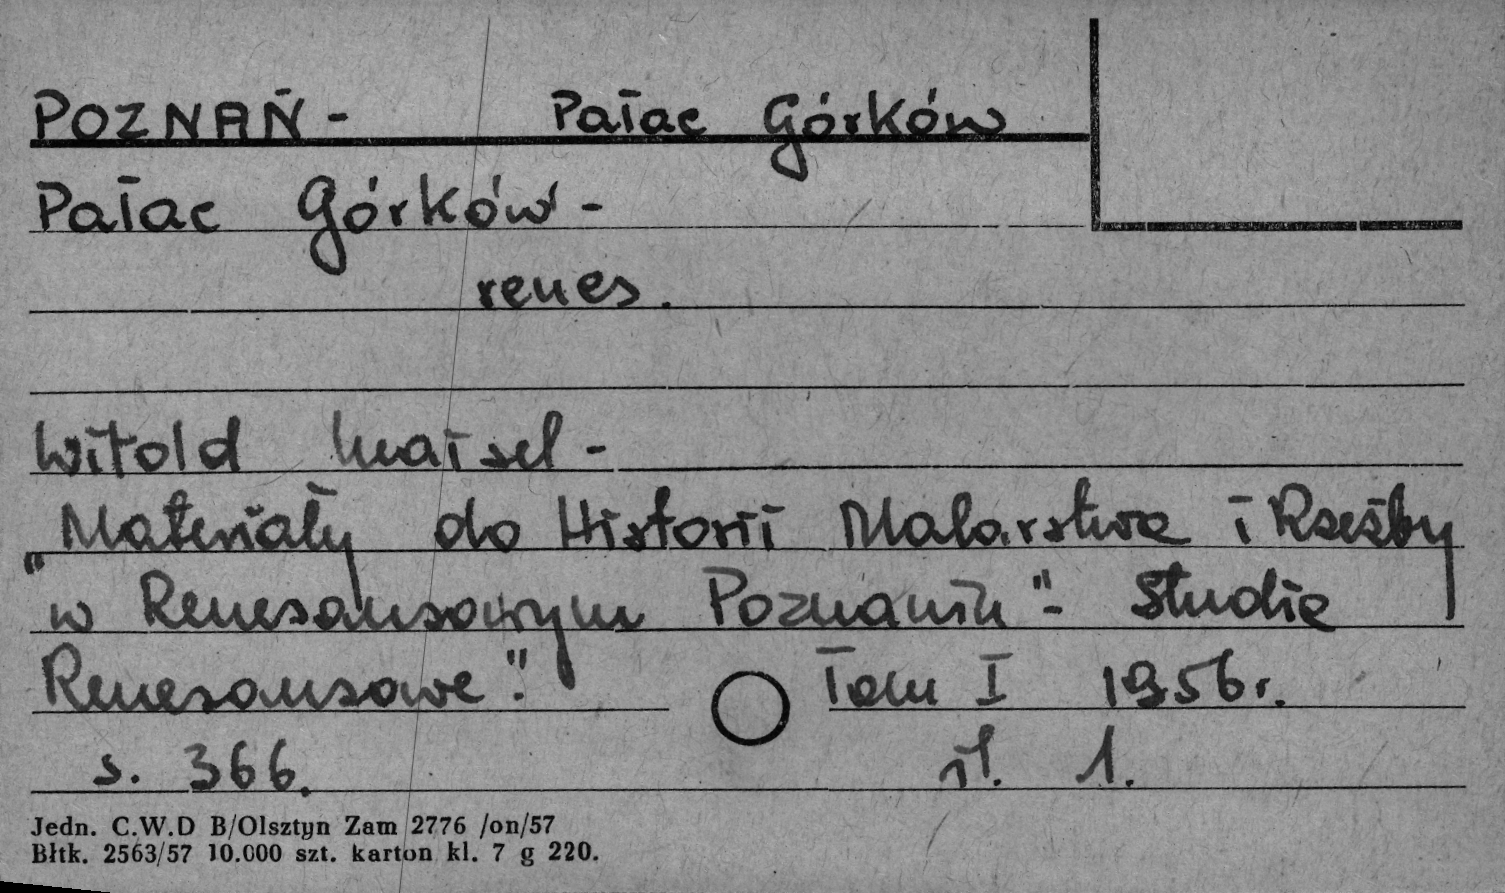 POZNAŃ - Pałac Górków
Pałac Górków -
renes.
Witold Maisel -
"Materiały do Historii Malarstwa i Rzeźby
w Renesansowym Poznaniu" - Studia
Renesansowe". Tom I 1956r.
s. 366. ił. 1.
Jedn. C.W.D B/Olsztyn Zam 2776 /on/57
Błtk. 2563/57 10.000 szt. karton kl. 7 g 220.